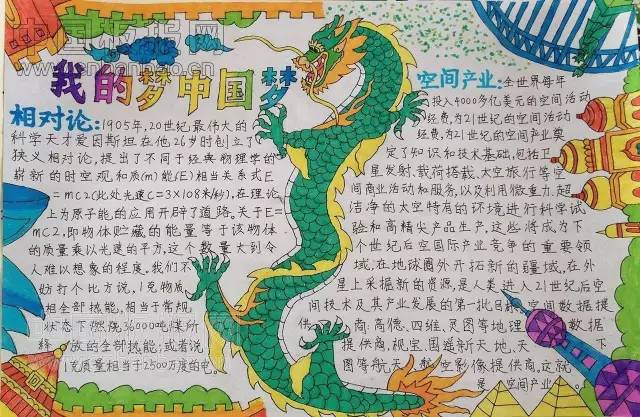 中国板报网
www.cnbanbao.cn
我的梦中国梦
相对论:1905年,20世纪最伟大的
科学天才爱因斯坦在他26岁时创立了
狭义相对论,提出了不同于经典物理学的
崭新的时空观和质(m)能(E)相当关系式E
=mc2(此处光速C=3×108米/秒),在理论
上为原子能的应用开辟了道路。关于E=
mC2,即物体贮藏的能量等于该物体
的质量乘以光速的平方,这个数量大到令
人难以想象的程度。我们不
妨打个比方说,1克物质
相全部热能,相当于常规
状态下燃烧36000吨煤所
释放的全部热能;或者说
1克质量相当于2500万度的电。
空间产业:全世界每年
投入4000多亿美元的空间活动
经费,为21世纪的空间活动
经费,为21世纪的空间产业奠
定了知识和技术基础,包括卫
星发射、载荷搭载、太空旅行等空
间商业活动和服务,以及利用微重力、超
洁净的太空特有的环境进行科学试
验和高精尖产品生产,这些将成为下
个世纪后空国际产业竞争的重要领
域,在地球圈外开拓新的疆域,在外
星上采掘新的资源,是人类进入21世纪后空
间技术及其产业发展的第一批目标,空间数据提
供商:高德、四维、灵图等地理数据
提供商,视宝、国遥新天地、天下
图等航天航空影像提供商,这就
是空间产业